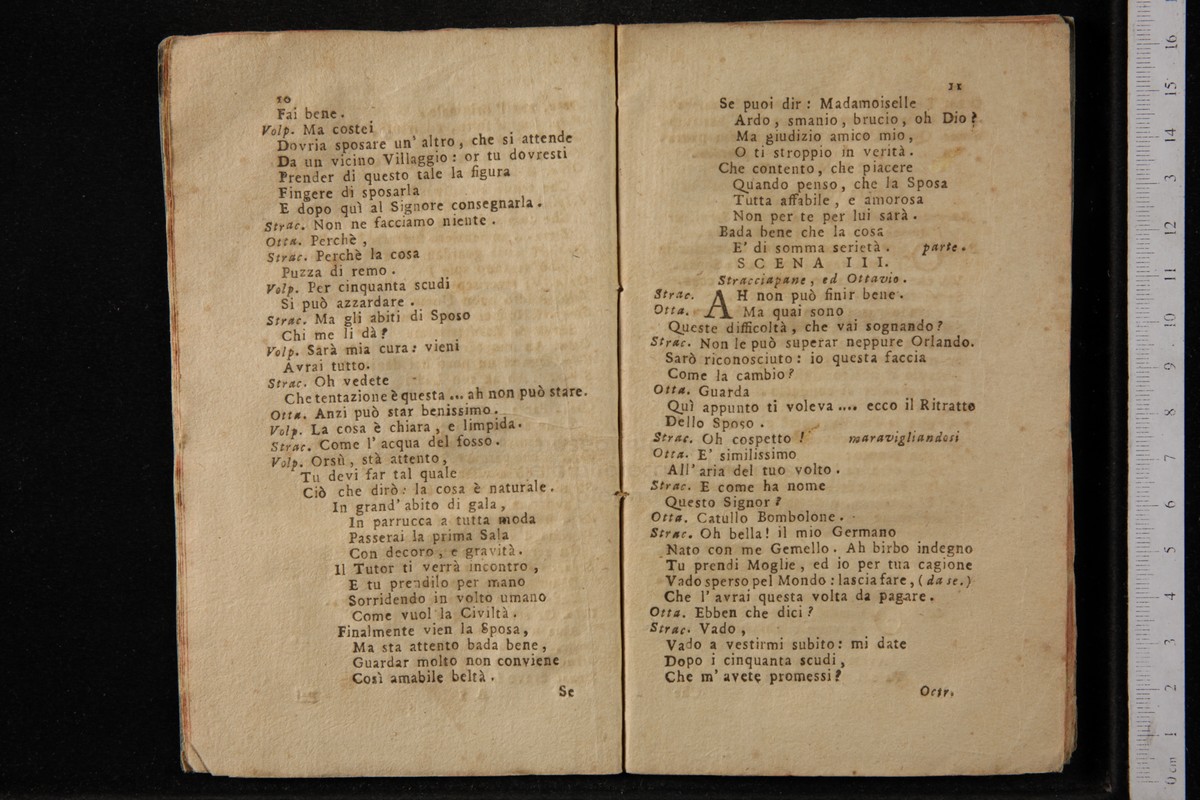 10
Fai bene.
Volp. Ma costei
Dovria sposare un' altro, che si attende
Da un vicino Villaggio: or tu dovresti
Prender di questo tale la figura
Fingere di sposarla
E dopo quì al Signore consegnarla.
Strac. Non ne facciamo niente.
Otta. Perchè,
Strac. Perchè la cosa
Puzza di remo.
Volp. Per cinquanta scudi
Si può azzardare.
Strac. Ma gli abiti di Sposo
Chi me li dà?
Volp. Sarà mia cura: vieni
Avrai tutto.
Strac. Oh vedete
Che tentazione è questa ... ah non può stare.
Otta. Anzi può star benissimo.
Volp. La cosa è chiara, e limpida.
Strac. Come l' acqua del fosso.
Volp. Orsù, stà attento,
Tu devi far tal quale
Ciò che dirò: la cosa è naturale.
In grand' abito di gala,
In parrucca a tutta moda
Passerai la prima Sala
Con decoro, e gravità.
Il Tutor ti verrà incontro,
E tu prendilo per mano
Sorridendo in volto umano
Come vuol la Civiltà.
Finalmente vien la Sposa,
Ma sta attento bada bene,
Guardar molto non conviene
Così amabile beltà.
Se
11
Se puoi dir: Madamoiselle
Ardo, smanio, brucio, oh Dio?
Ma giudizio amico mio,
O ti stroppio in verità.
Che contento, che piacere
Quando penso, che la Sposa
Tutta affabile, e amorosa
Non per te per lui sarà.
Bada bene che la cosa
E' di somma serietà. parte.
SCENA III.
Stracciapane, ed Ottavio.
Strac. AH non può finir bene.
Otta. Ma quai sono
Queste difficoltà, che vai sognando?
Strac. Non le può superar neppure Orlando.
Sarò riconosciuto: io questa faccia
Come la cambio?
Otta. Guarda
Quì appunto ti voleva .... ecco il Ritratto
Dello Sposo.
Strac. Oh cospetto! maravigliandosi
Otta. E' similissimo
All' aria del tuo volto.
Strac. E come ha nome
Questo Signor?
Otta. Catullo Bombolone.
Strac. Oh bella! il mio Germano
Nato con me Gemello. Ah birbo indegno
Tu prendi Moglie, ed io per tua cagione
Vado sperso pel Mondo: lascia fare, (da se.)
Che l' avrai questa volta da pagare.
Otta. Ebben che dici?
Strac. Vado,
Vado a vestirmi subito: mi date
Dopo i cinquanta scudi,
Che m' avete promessi?